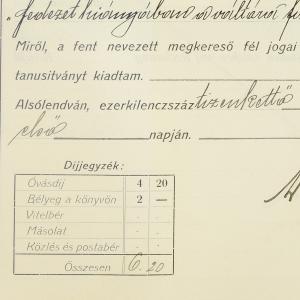 "fedezet hiányzóban a váltónő
Miről, a fent nevezett megkereső fél jogai
tanusítványt kiadtam.
Alsólendván, ezerkilenczszáz tizenkettő
első napján.
Díjjegyzék:
Óvásdíj 4 20
Bélyeg a könyvön 2 —
Vitelbér - -
Másolat - -
Közlés és postabér - -
Összesen 6. 20